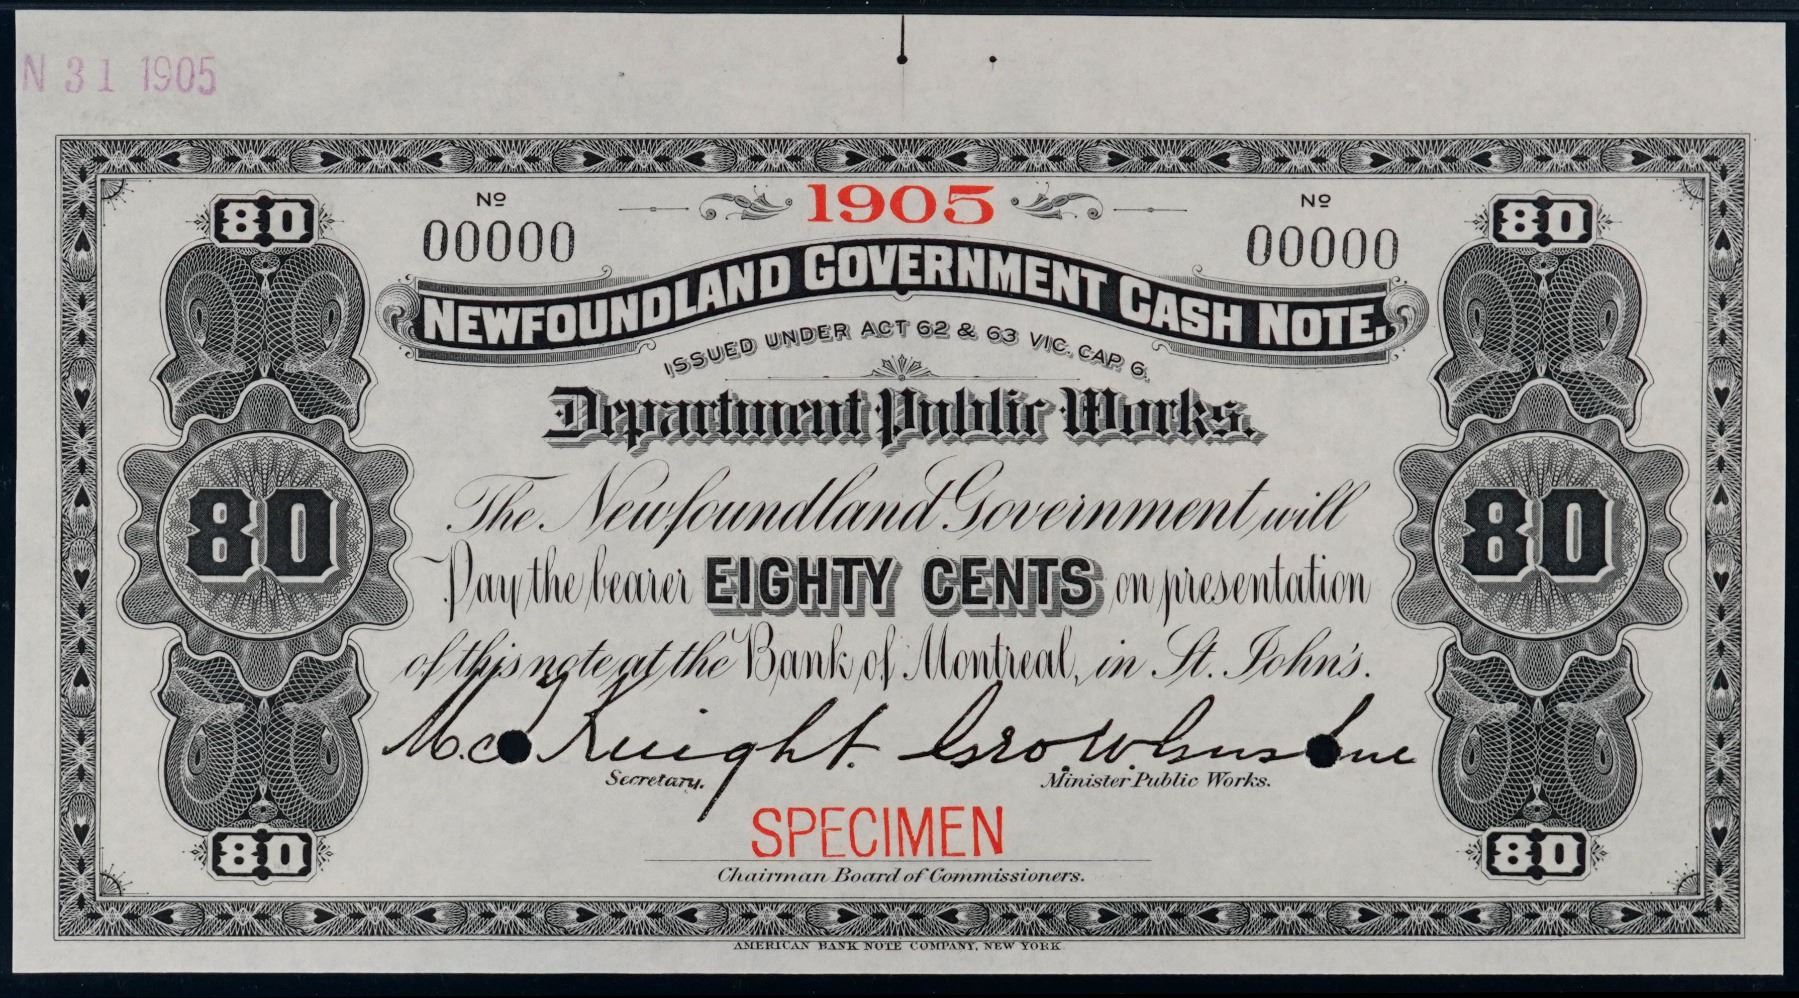 N 31 1905
1905
Nº Nº
00000 00000
80 80
NEWFOUNDLAND GOVERNMENT CASH NOTE.
ISSUED UNDER ACT 62 & 63 VIC. CAP. 6.
Department Public Works.
The Newfoundland Government will
80 80
Pay the bearer EIGHTY CENTS on presentation
of this note at the Bank of Montreal, in St. John's.
Secretary.
Minister Public Works.
SPECIMEN
80 80
Chairman Board of Commissioners.
AMERICAN BANK NOTE COMPANY, NEW YORK